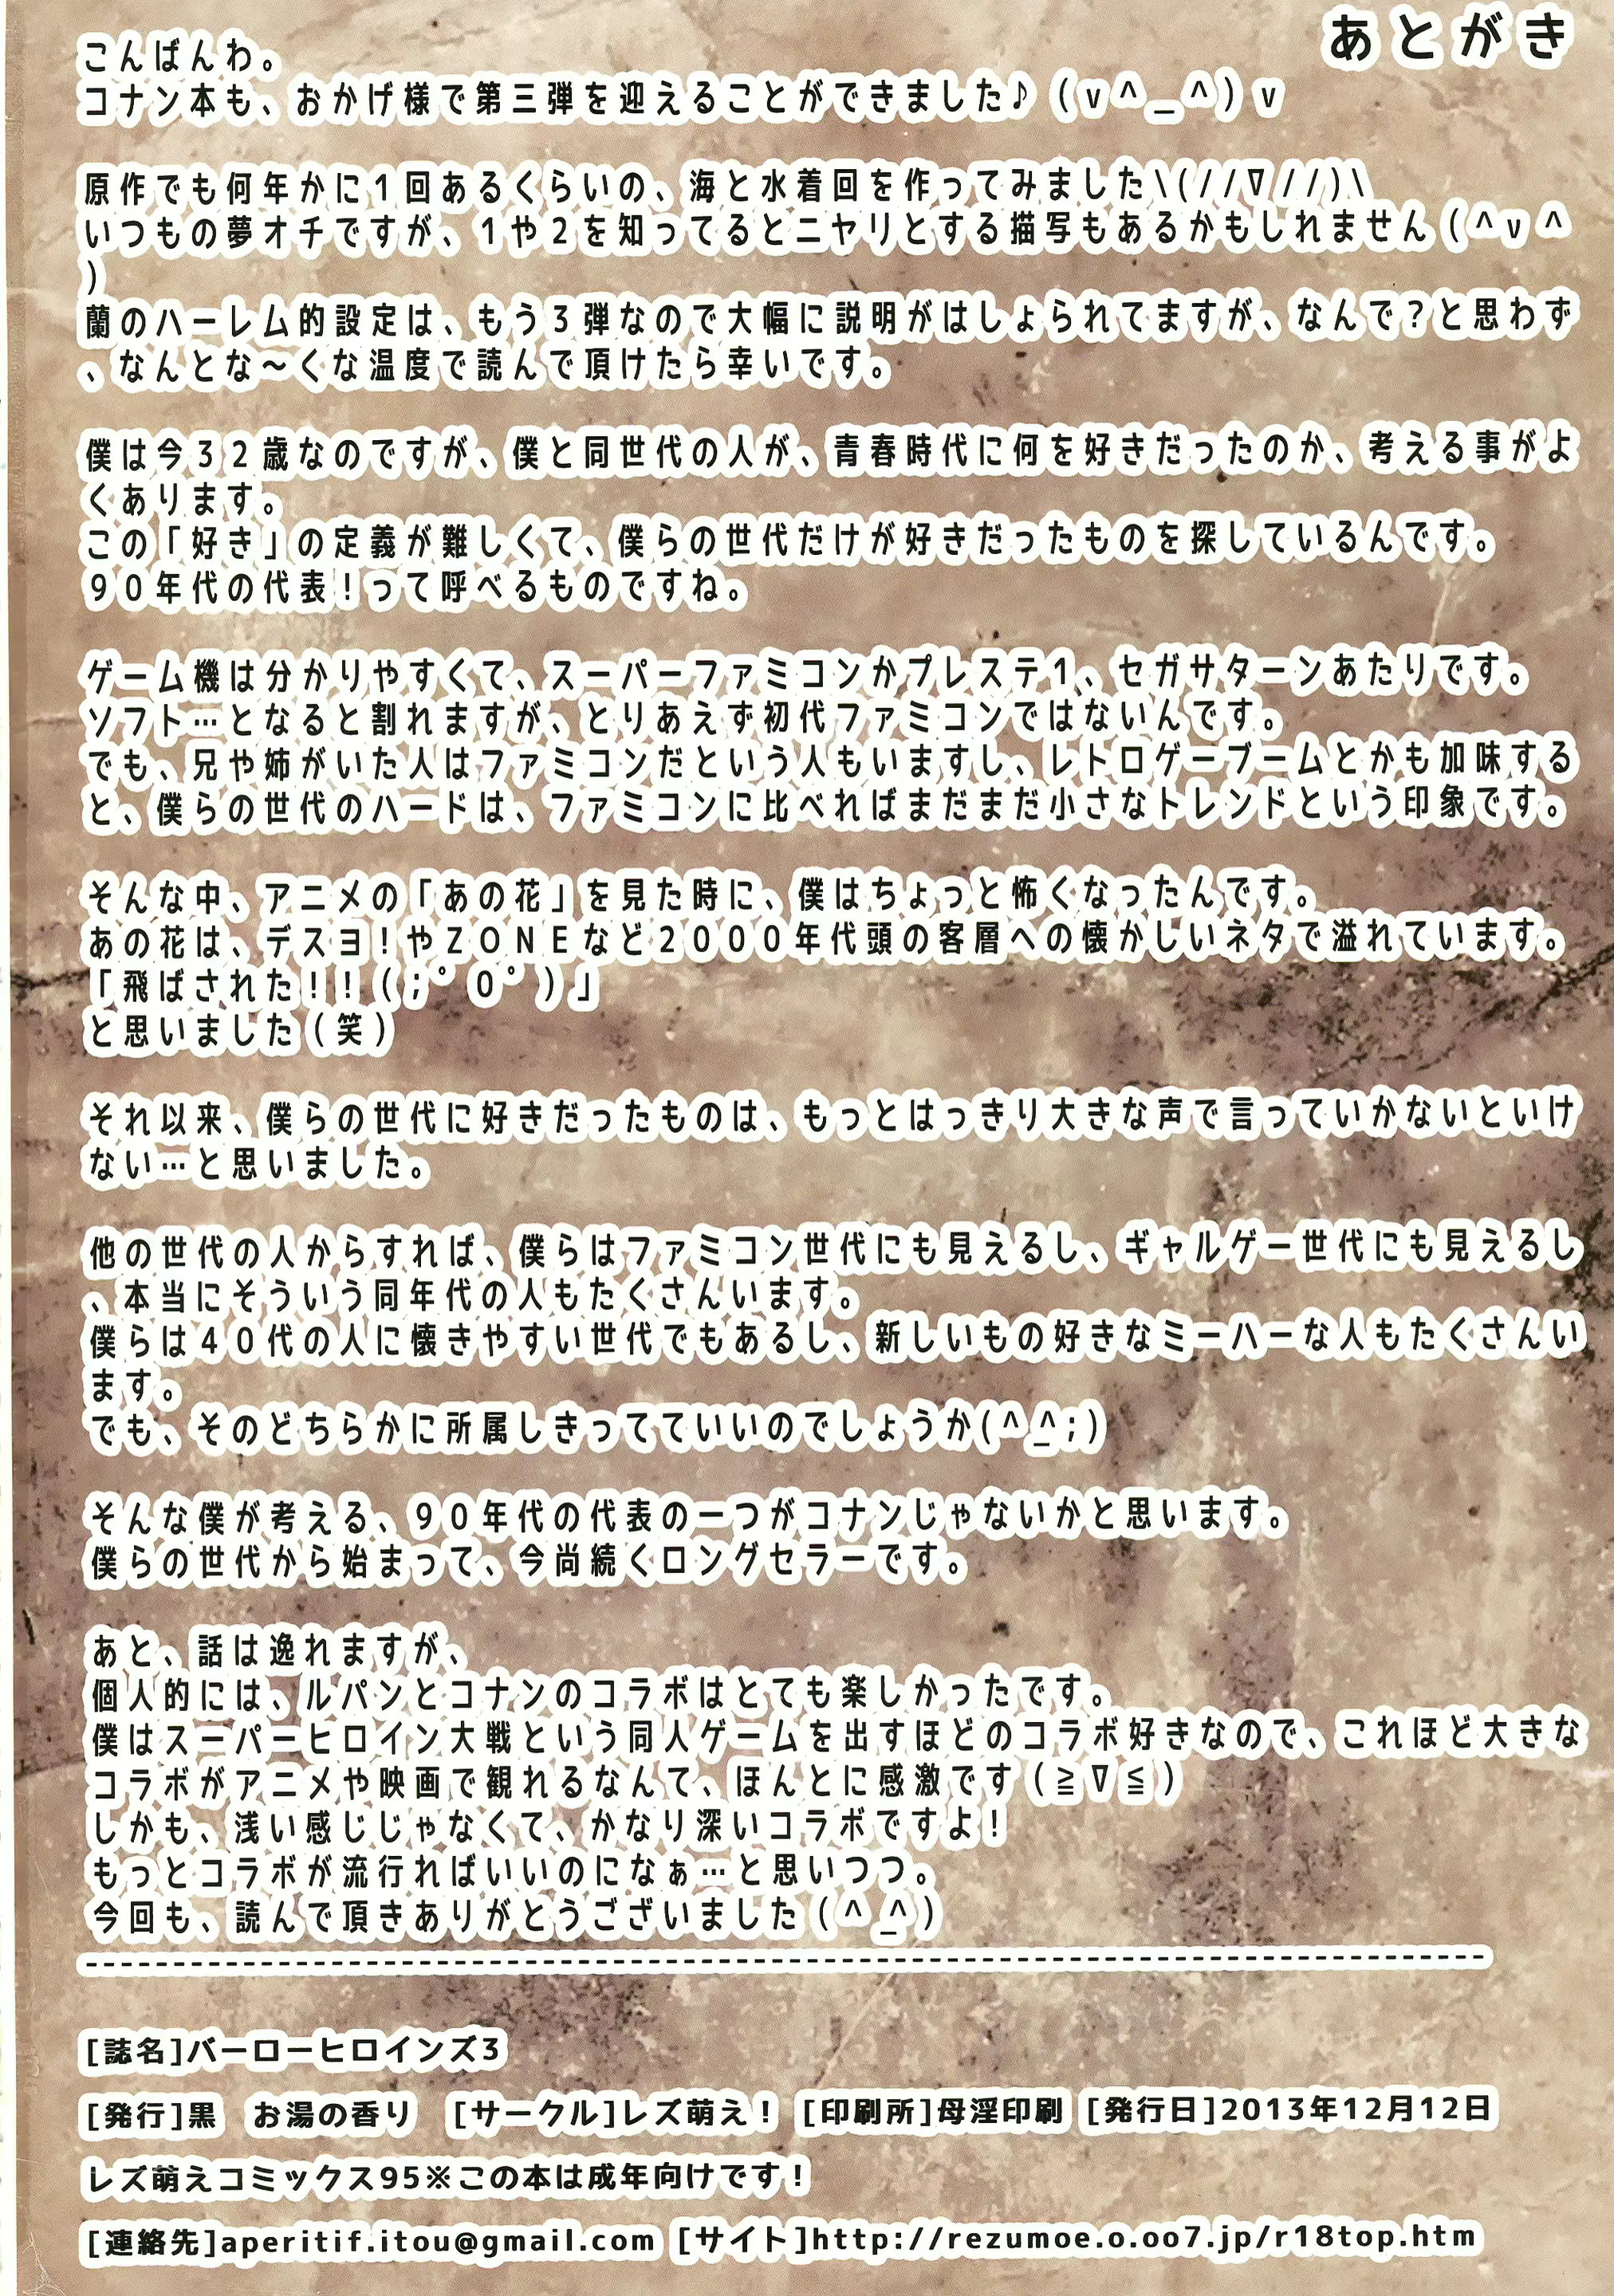 あとがき
こんばんわ。
コナン本も、おかげ様で第三弾を迎えることができました♪(v^_^)v
原作でも何年かに1回あるくらいの、海と水着回を作ってみました\(//∇//)\
いつもの夢オチですが、1や2を知ってるとニヤリとする描写もあるかもしれません(^v^
)
蘭のハーレム的設定は、もう3弾なので大幅に説明がはしょられてますが、なんで?と思わず
、なんとな～くな温度で読んで頂けたら幸いです。
僕は今32歳なのですが、僕と同世代の人が、青春時代に何を好きだったのか、考える事がよ
くあります。
この「好き」の定義が難しくて、僕らの世代だけが好きだったものを探しているんです。
90年代の代表!って呼べるものですね。
ゲーム機は分かりやすくて、スーパーファミコンかプレステ1、セガサターンあたりです。
ソフト…となると割れますが、とりあえず初代ファミコンではないんです。
でも、兄や姉がいた人はファミコンだという人もいますし、レトロゲーブームとかも加味する
と、僕らの世代のハードは、ファミコンに比べればまだまだ小さなトレンドという印象です。
そんな中、アニメの「あの花」を見た時に、僕はちょっと怖くなったんです。
あの花は、デスヨ!やZONEなど2000年代頭の客層への懐かしいネタで溢れています。
「飛ばされた!!(;゜0゜)」
と思いました(笑)
それ以来、僕らの世代に好きだったものは、もっとはっきり大きな声で言っていかないといけ
ない…と思いました。
他の世代の人からすれば、僕らはファミコン世代にも見えるし、ギャルゲー世代にも見えるし
、本当にそういう同年代の人もたくさんいます。
僕らは40代の人に懐きやすい世代でもあるし、新しいもの好きなミーハーな人もたくさんい
ます。
でも、そのどちらかに所属しきってていいのでしょうか(^_^;)
そんな僕が考える、90年代の代表の一つがコナンじゃないかと思います。
僕らの世代から始まって、今尚続くロングセラーです。
あと、話は逸れますが、
個人的には、ルパンとコナンのコラボはとても楽しかったです。
僕はスーパーヒロイン大戦という同人ゲームを出すほどのコラボ好きなので、これほど大きな
コラボがアニメや映画で観れるなんて、ほんとに感激です(≧∇≦)
しかも、浅い感じじゃなくて、かなり深いコラボですよ!
もっとコラボが流行ればいいのになぁ…と思いつつ。
今回も、読んで頂きありがとうございました(^_^)
[誌名]バーローヒロインズ3
[発行]黒 お湯の香り [サークル]レズ萌え! [印刷所]母淫印刷 [発行日]2013年12月12日
レズ萌えコミックス95※この本は成年向けです!
[連絡先]aperitif.itou@gmail.com [サイト]http://rezumoe.o.oo7.jp/r18top.htm